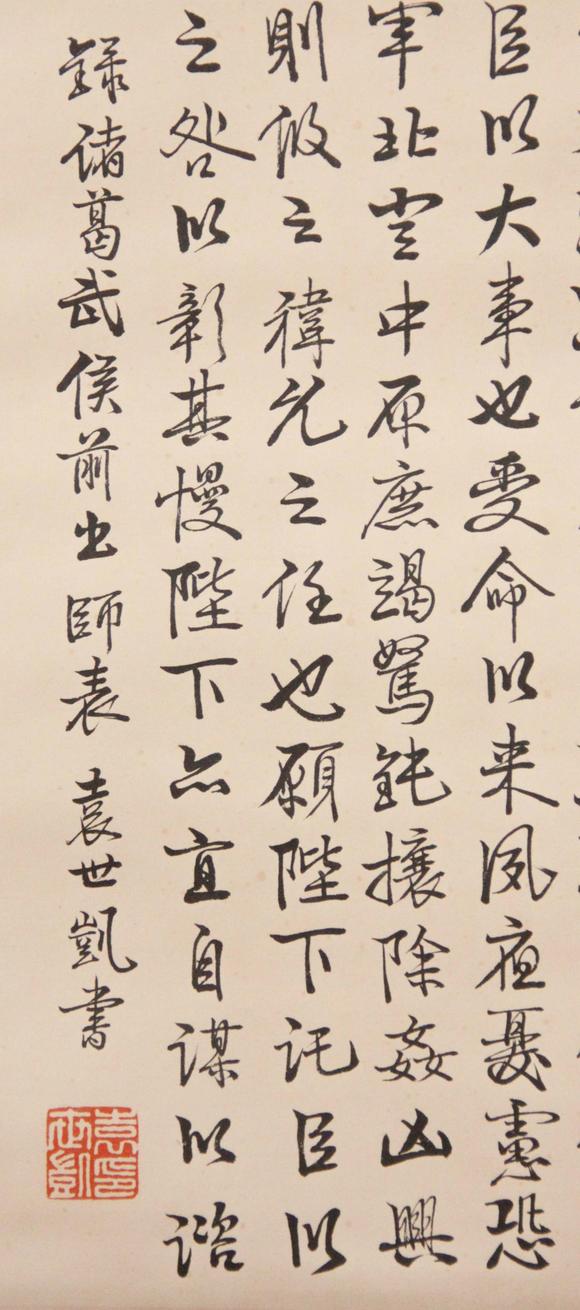 臣以大事也受命以来夙夜憂慮恐
軍北定中原庶竭駑鈍攘除姦凶興
則攸之禕允之任也願陛下託臣以
之咎以彰其慢陛下亦宜自謀以諮
錄諸葛武侯前出師表 袁世凱書
袁印世凱